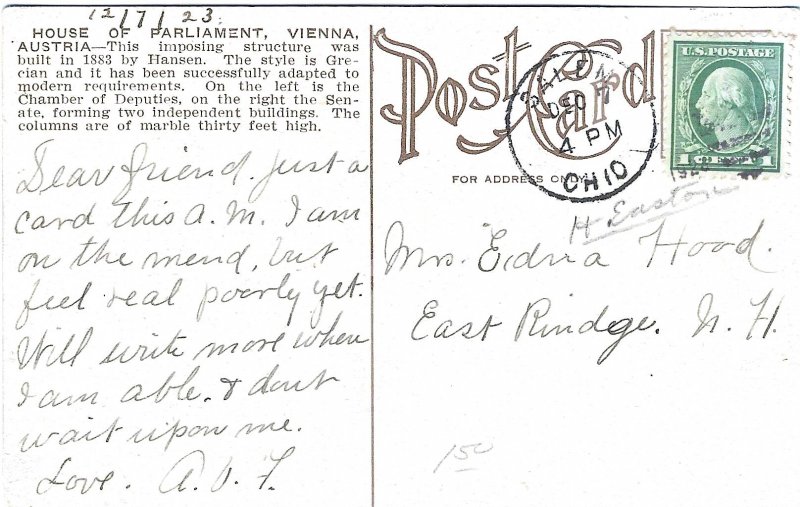 12/7/23.
HOUSE OF PARLIAMENT, VIENNA,
AUSTRIA—This imposing structure was
built in 1883 by Hansen. The style is Gre-
cian and it has been successfully adapted to
modern requirements. On the left is the
Chamber of Deputies, on the right the Sen-
ate, forming two independent buildings. The
columns are of marble thirty feet high.
Dear friend. Just a
card this A.M. I am
on the mend, but
feel real poorly yet.
Will write more when
I am able. & dont
wait upon me.
Love. A. V. F.
Post Card
FOR ADDRESS ONLY
SALEM
DEC 7
4 PM
OHIO
U.S. POSTAGE
1 1
H Easton
Mrs. Edna Hood.
East Rindge. N. H.
150